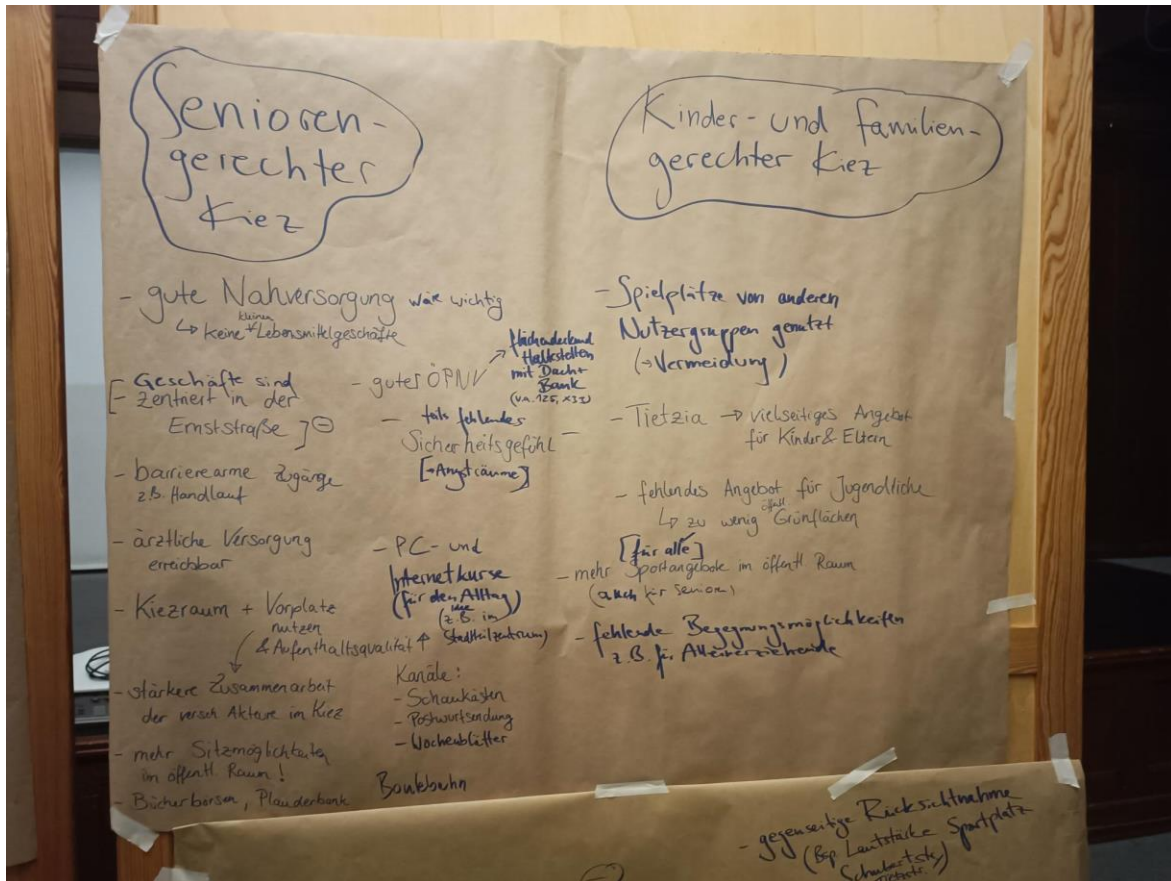 Senioren-
gerechter
Kiez
- gute Nahversorgung wäre wichtig
↳ keine kleinen Lebensmittelgeschäfte
[- Geschäfte sind
- zentriert in der
Ernststraße ] ⊖
- barrierearme Zugänge
z.B. Handlauf
- ärztliche Versorgung
erreichbar
- Kiezraum + Vorplatz
nutzen
& Aufenthaltsqualität ↑
- stärkere Zusammenarbeit
der versch Akteure im Kiez
- mehr Sitzmöglichkeiten
im öffentl Raum!
- Bücherbörsen, Plauderbank
- guter ÖPNV
flächendeckend
Haltestellen
mit Dach +
Bank
(v.a. 125, X33)
- teils fehlendes
Sicherheitsgefühl -
[→Angsträume]
- PC- und
Internetkurse
(für den Alltag)
(z.B. im
Stadtteilzentrum)
Kanäle:
- Schaukästen
- Postwurfsendung
- Wochenblätter
Kinder- und familien-
gerechter Kiez
- Spielplätze von anderen
Nutzergruppen genutzt
(→Vermeidung)
- Tietzia → vielseitiges Angebot
für Kinder & Eltern
- fehlendes Angebot für Jugendliche
↳ zu wenig öffentl Grünflächen
[für alle]
- mehr Sportangebote im öffentl Raum
(auch für Senior.)
- fehlende Begegnungsmöglichkeiten
z.B. für Alleinerziehende
- gegenseitige Rücksichtnahme
(Bsp Lautstärke Sportplatz
Schubertstr.)